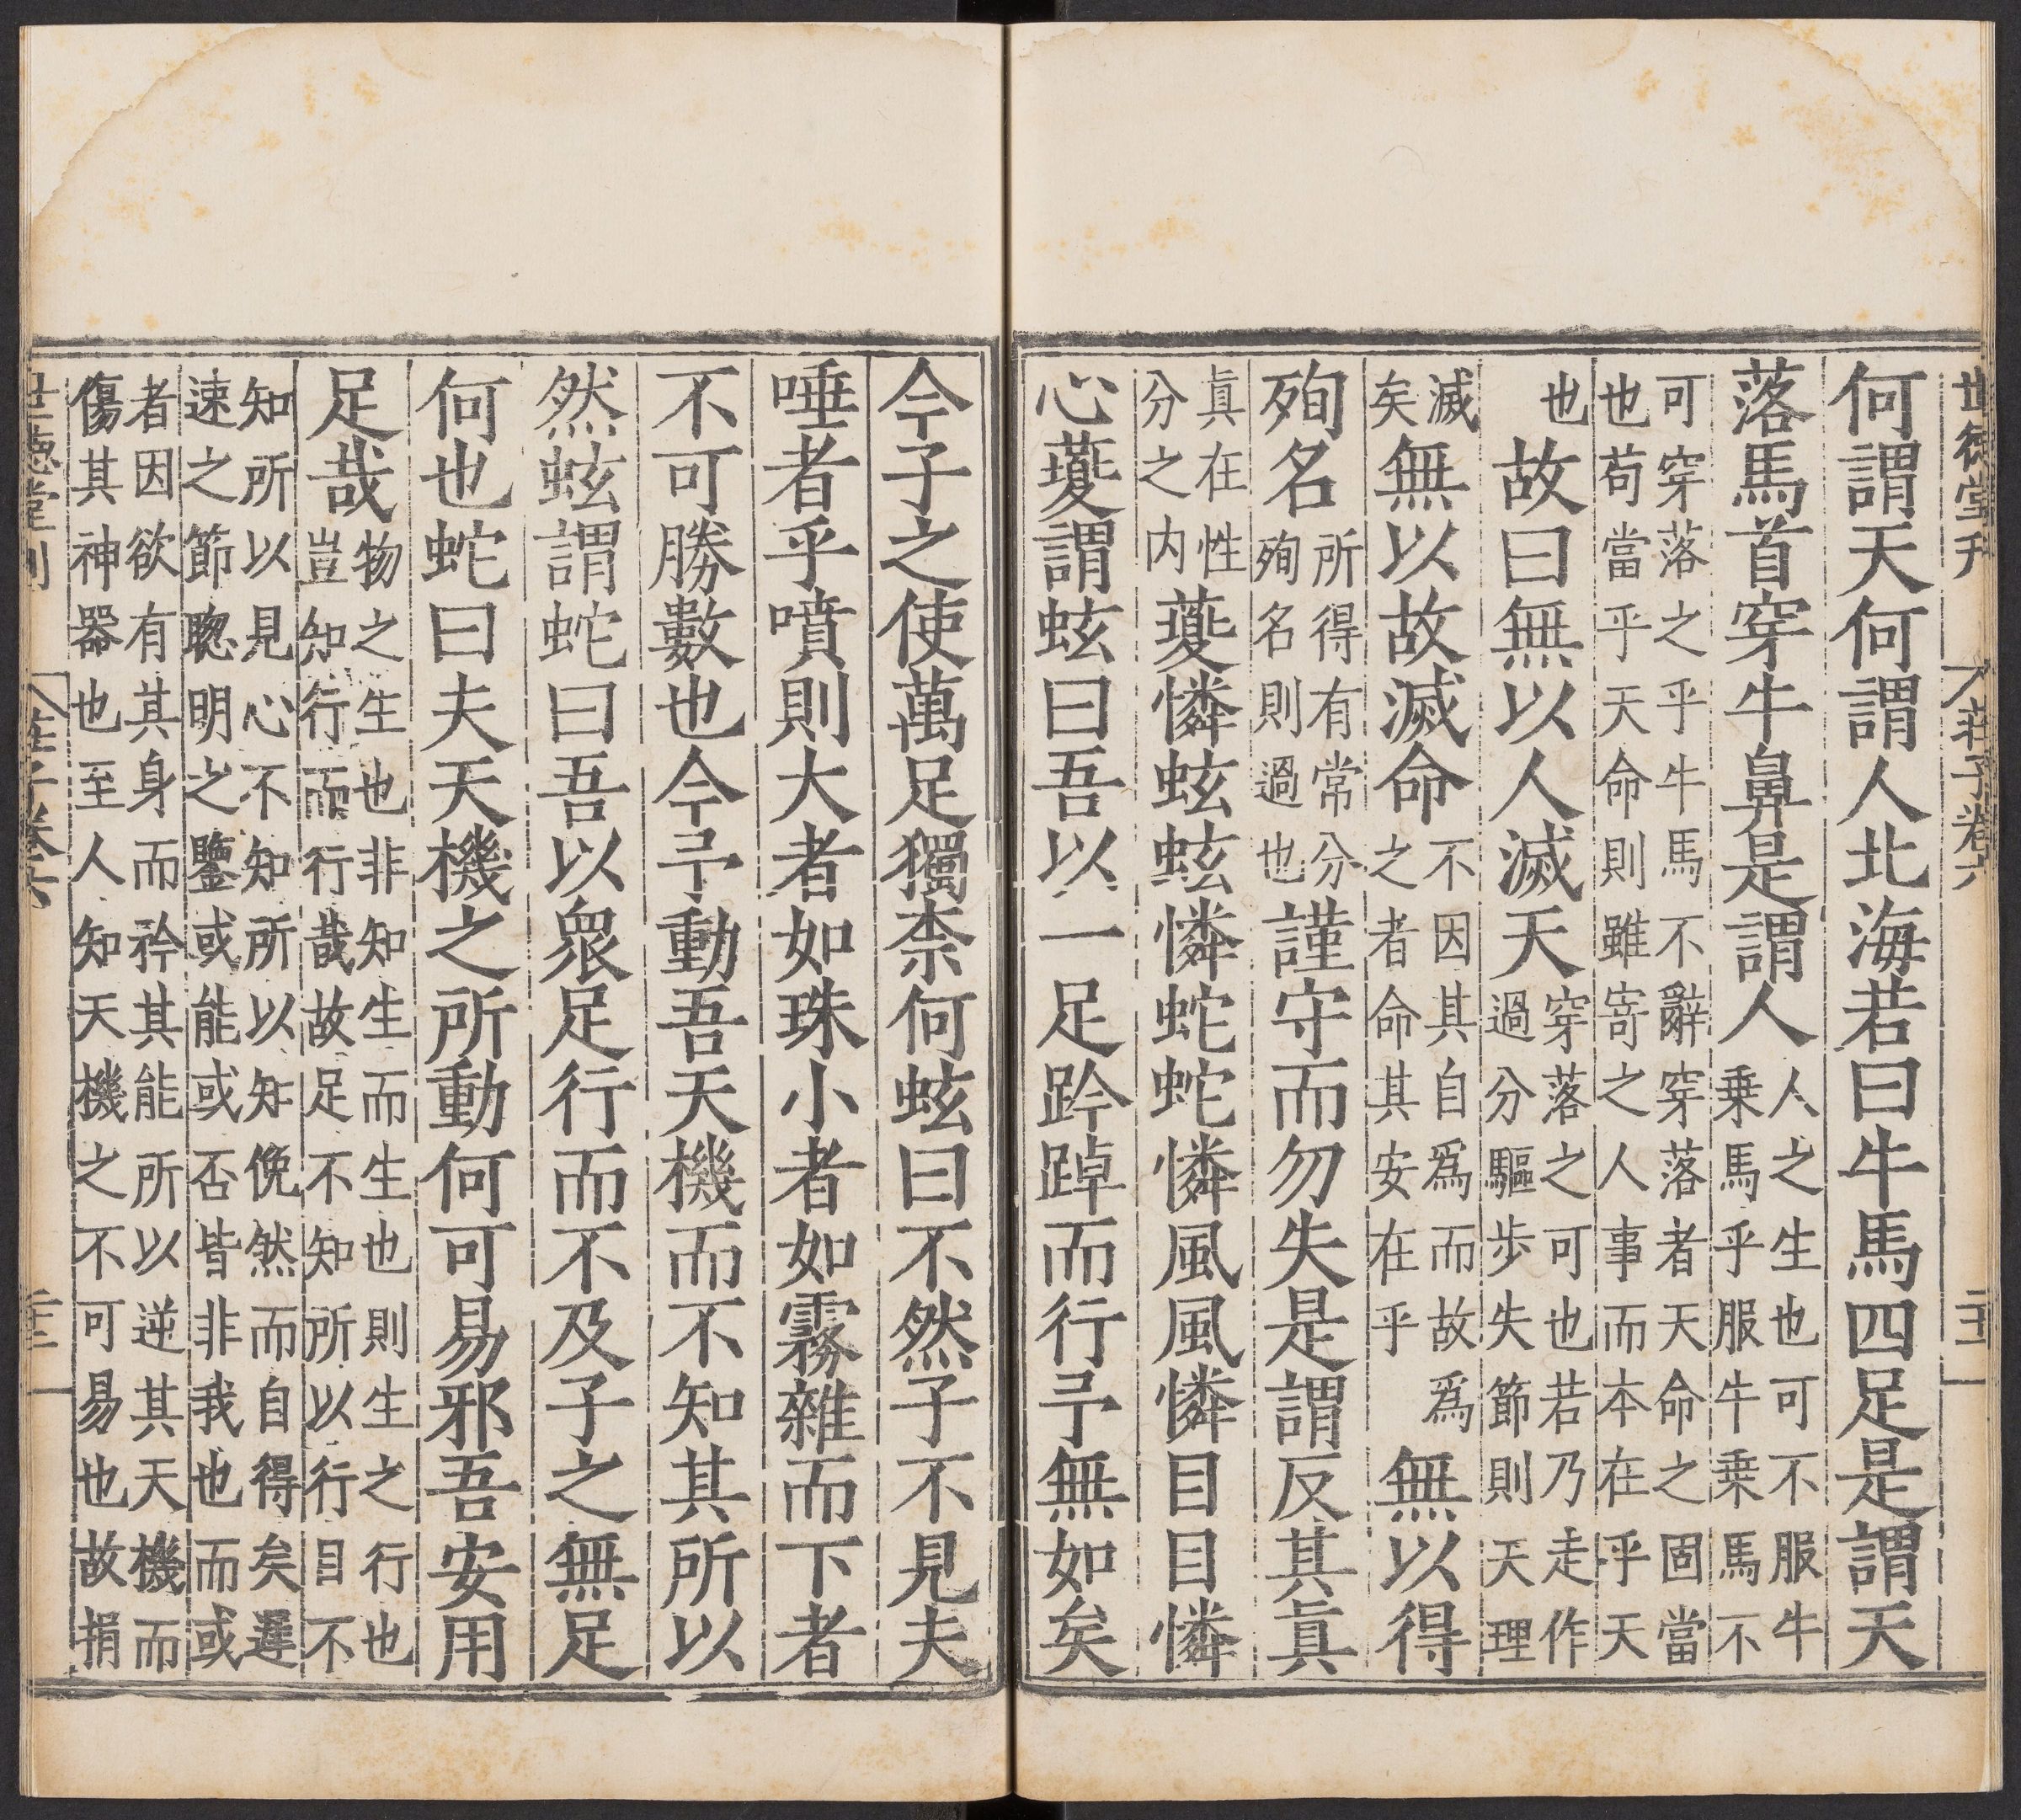 世德堂刊 莊子卷六
何謂天何謂人北海若曰牛馬四足是謂天
落馬首穿牛鼻是謂人人之生也可不服牛乗馬乎服牛乗馬不
可穿落之乎牛馬不辭穿落者天命之固當
也苟當乎天命則雖寄之人事而本在乎天
也故曰無以人滅天穿落之可也若乃走作過分驅步失節則天理
滅矣無以故滅命不因其自爲而故爲之者命其安在乎無以得
殉名所得有常分殉名則過也謹守而勿失是謂反其眞
眞在性分之内夔憐蚿蚿憐蛇蛇憐風風憐目目憐
心夔謂蚿曰吾以一足趻踔而行予無如矣
今子之使萬足獨柰何蚿曰不然子不見夫
唾者乎噴則大者如珠小者如霧雜而下者
不可勝數也今予動吾天機而不知其所以
然蚿謂蛇曰吾以衆足行而不及子之無足
何也蛇曰夫天機之所動何可易邪吾安用
足哉物之生也非知生而生也則生之行也豈知行而行哉故足不知所以行目不
知所以見心不知所以知俛然而自得矣遲
速之節聦明之鑒或能或否皆非我也而或
者因欲有其身而矜其能所以逆其天機而
傷其神器也至人知天機之不可易也故捐
世德堂刊 莊子卷六